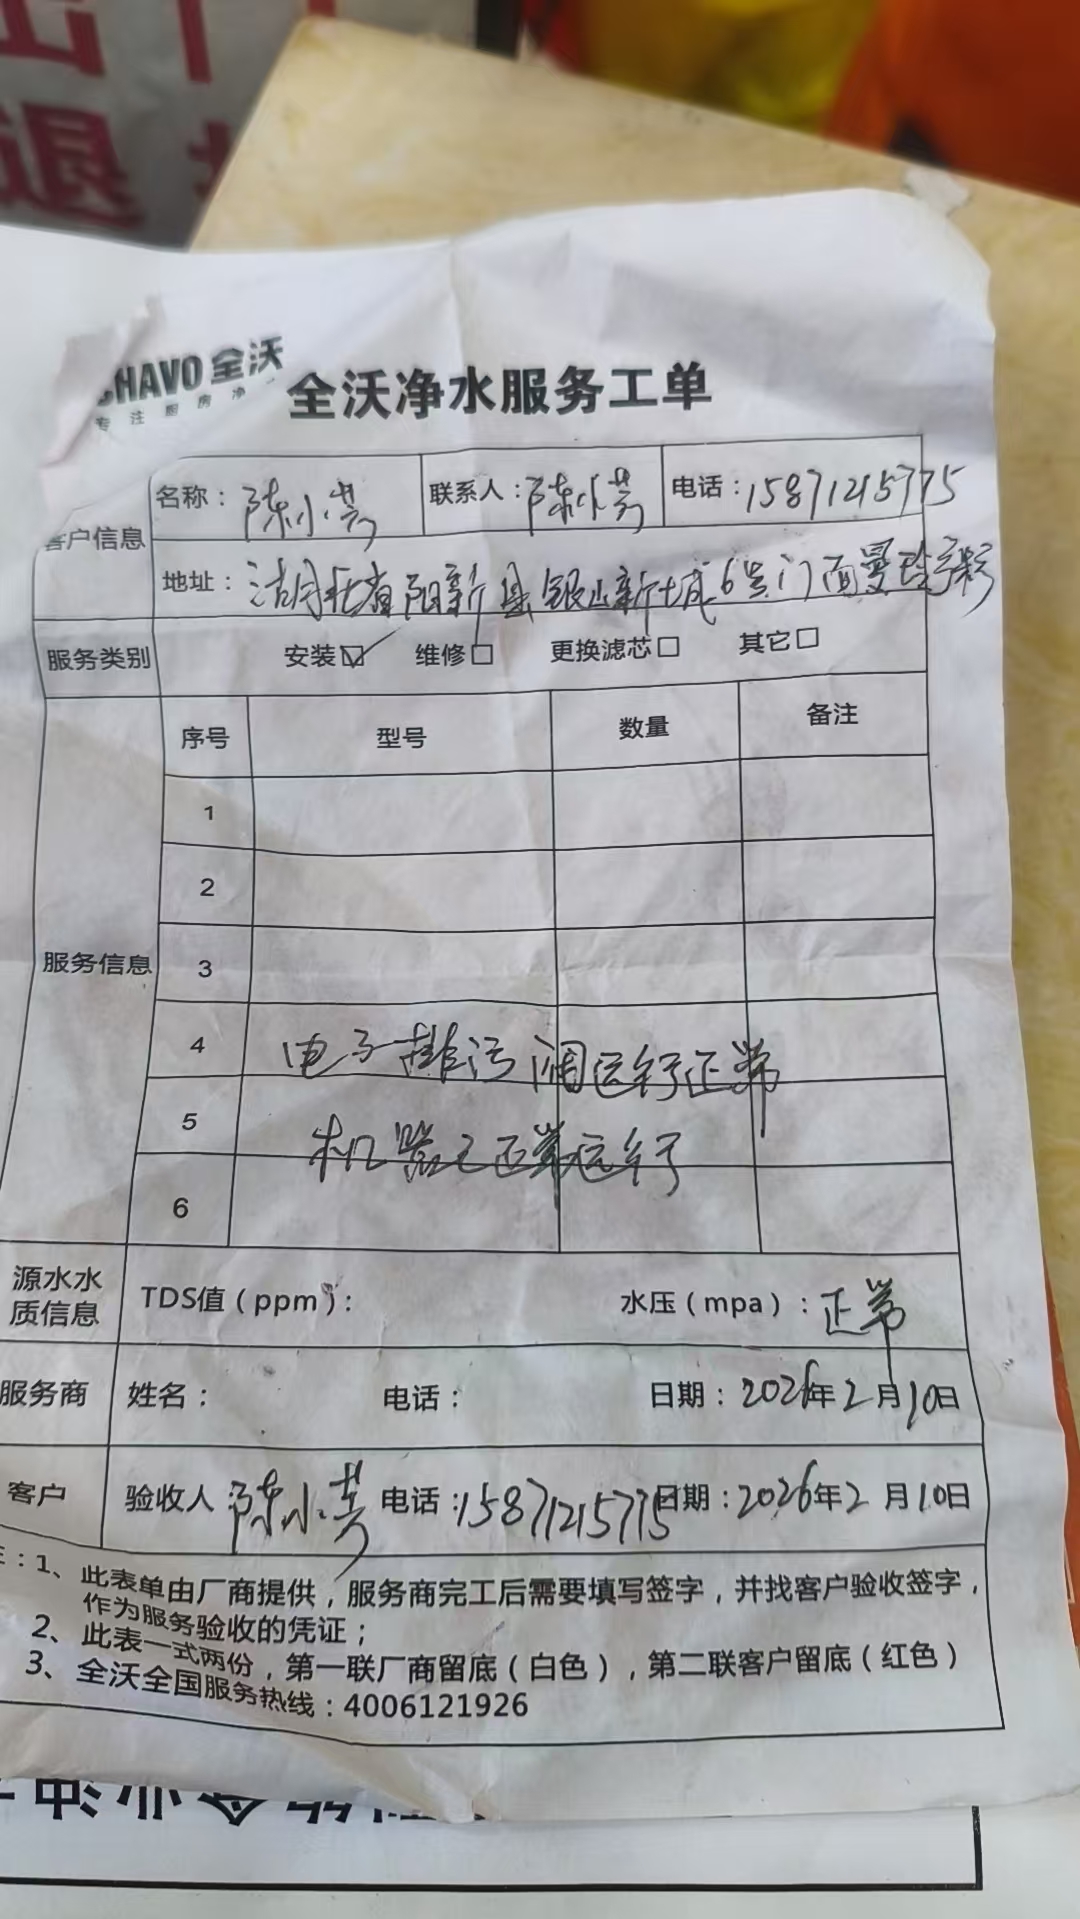 出门
退
CHAVO 全沃
专注厨房净
全沃净水服务工单
客户信息
名称：陈小芳 联系人：陈小芳 电话：15871215775
地址：湖北省阳新县银山新城6号门面曼玲粥
服务类别 安装☑ 维修□ 更换滤芯□ 其它□
服务信息
序号 型号 数量 备注
1
2
3
4 电子排污阀运行正常
5 机器已正常运行
6
源水水质信息 TDS值（ppm）： 水压（mpa）：正常
服务商 姓名： 电话： 日期：2026年2月10日
客户 验收人 陈小芳 电话：15871215775 日期：2026年2月10日
注：1、此表单由厂商提供，服务商完工后需要填写签字，并找客户验收签字，
作为服务验收的凭证；
2、此表一式两份，第一联厂商留底（白色），第二联客户留底（红色）
3、全沃全国服务热线：4006121926